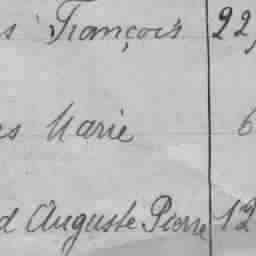 s François 22,
es Marie 6
d Auguste Pierre 12